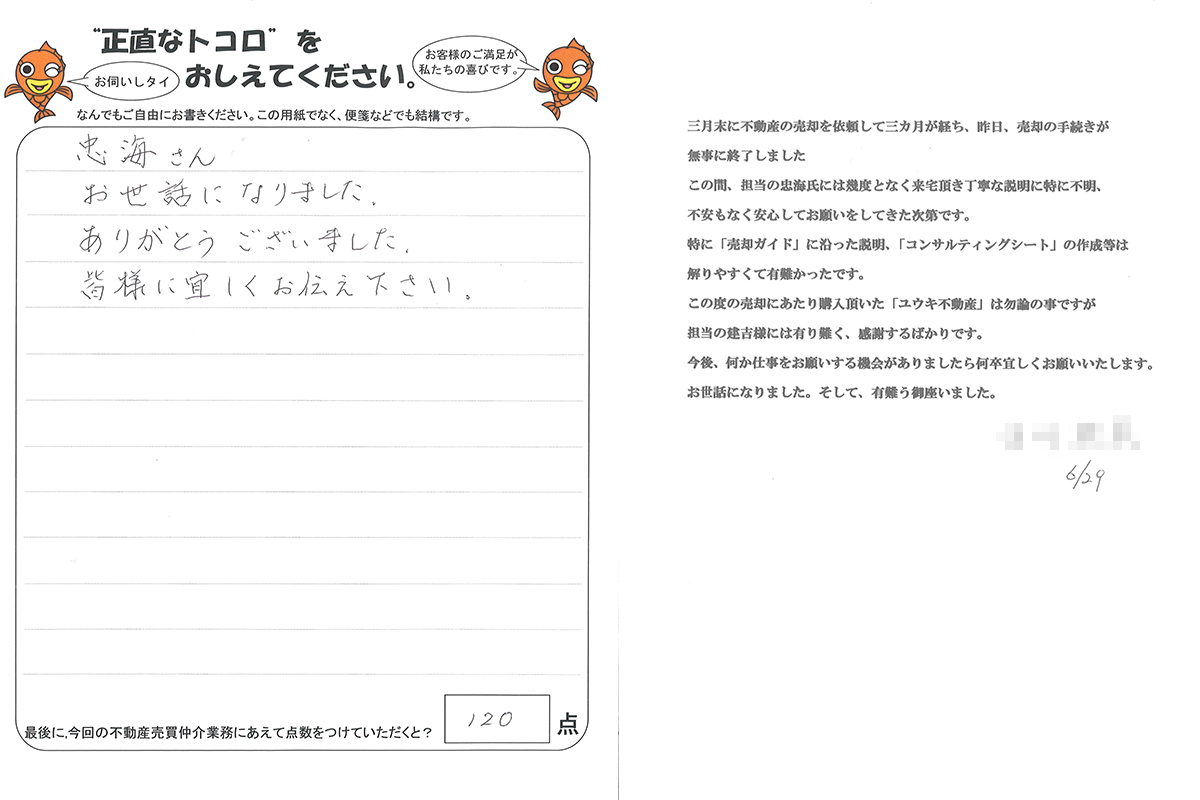 “正直なトコロ”を
おしえてください。
お伺いしタイ
お客様のご満足が
私たちの喜びです。
なんでもご自由にお書きください。この用紙でなく、便箋などでも結構です。
忠海さん
お世話になりました.
ありがとうございました.
皆様に宜しくお伝え下さい。
最後に,今回の不動産売買仲介業務にあえて点数をつけていただくと?
120
点
三月末に不動産の売却を依頼して三カ月が経ち、昨日、売却の手続きが
無事に終了しました
この間、担当の忠海氏には幾度となく来宅頂き丁寧な説明に特に不明、
不安もなく安心してお願いをしてきた次第です。
特に「売却ガイド」に沿った説明、「コンサルティングシート」の作成等は
解りやすくて有難かったです。
この度の売却にあたり購入頂いた「ユウキ不動産」は勿論の事ですが
担当の建吉様には有り難く、感謝するばかりです。
今後、何か仕事をお願いする機会がありましたら何卒宜しくお願いいたします。
お世話になりました。そして、有難う御座いました。
6/29